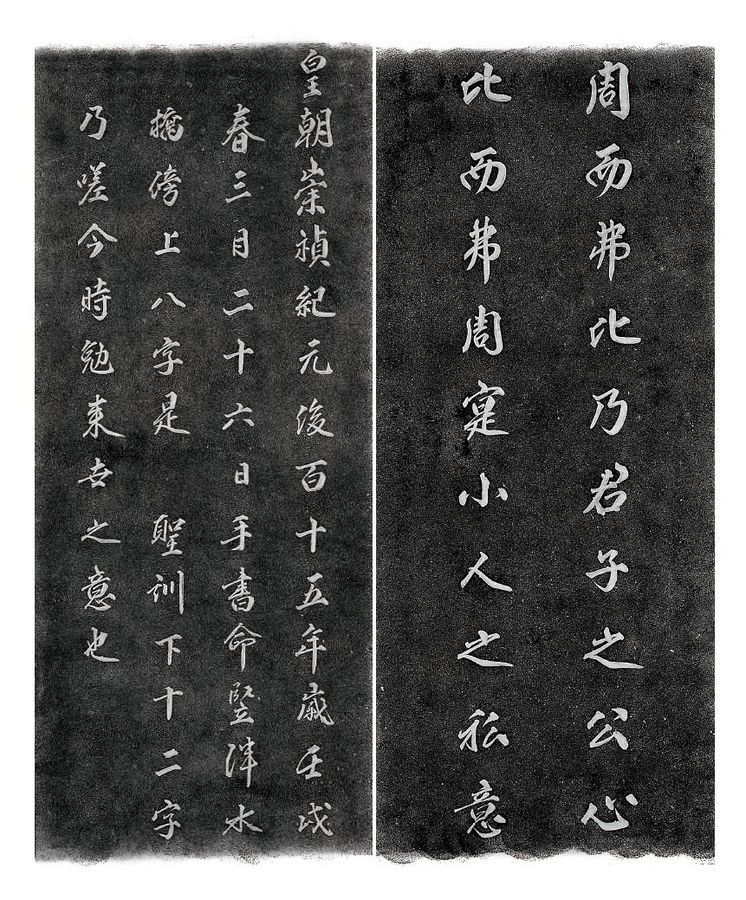 周而弗比乃君子之公心
比而弗周寔小人之私意
皇朝崇禎紀元後百十五年歲壬戌
春三月二十六日手書命竪泮水
橋傍上八字是 聖訓下十二字
乃嗟今時勉來世之意也